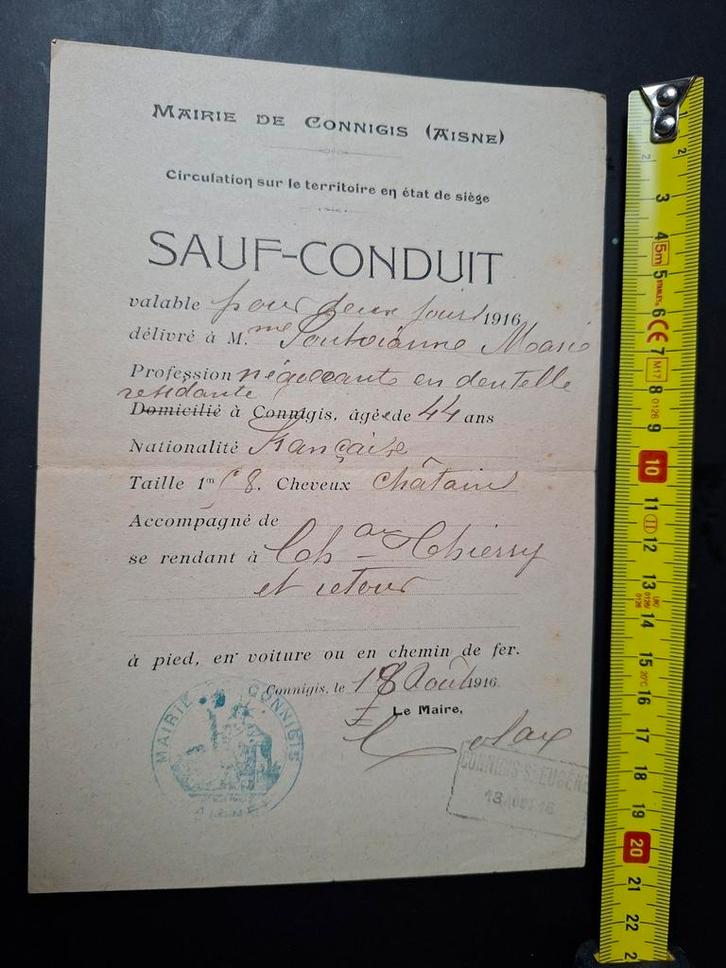 MAIRIE DE CONNIGIS (AISNE)
Circulation sur le territoire en état de siège
SAUF-CONDUIT
valable pour deux jours 1916
délivré à M.me Marie
Profession négociante en dentelle
résidante
Domicilié à Connigis, âgée de 44 ans
Nationalité Française
Taille 1m 58. Cheveux châtains
Accompagné de
se rendant à Chau-Thierry
et retour
à pied, en voiture ou en chemin de fer.
Connigis, le 18 Août 1916.
Le Maire,
MAIRIE DE CONNIGIS
CONNIGIS-ST-EUGÈNE
18 AOUT 16
2
2
3
4
5m
5
6
CE
7
M17
8
0126
9
10
11
II
12
13
14
15
20°C
16
17
18
19
20
21
22